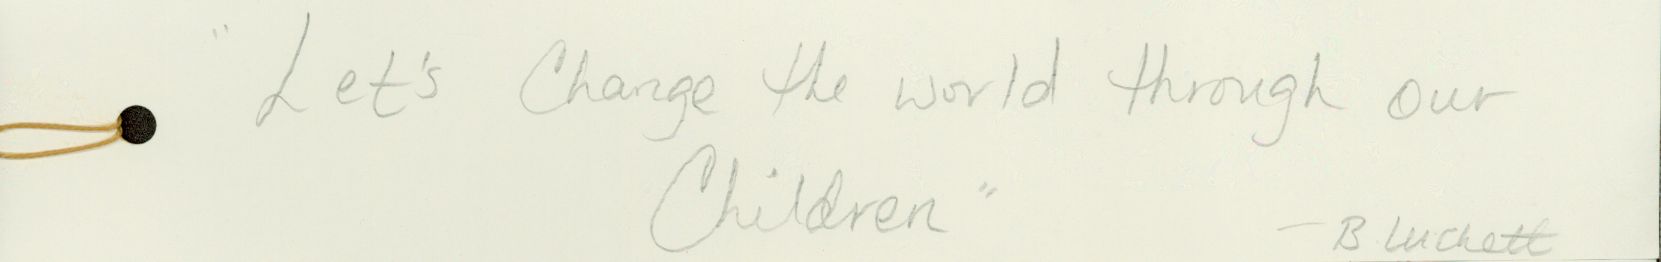 "Let's Change the world through our
Children"
- B. Luckett